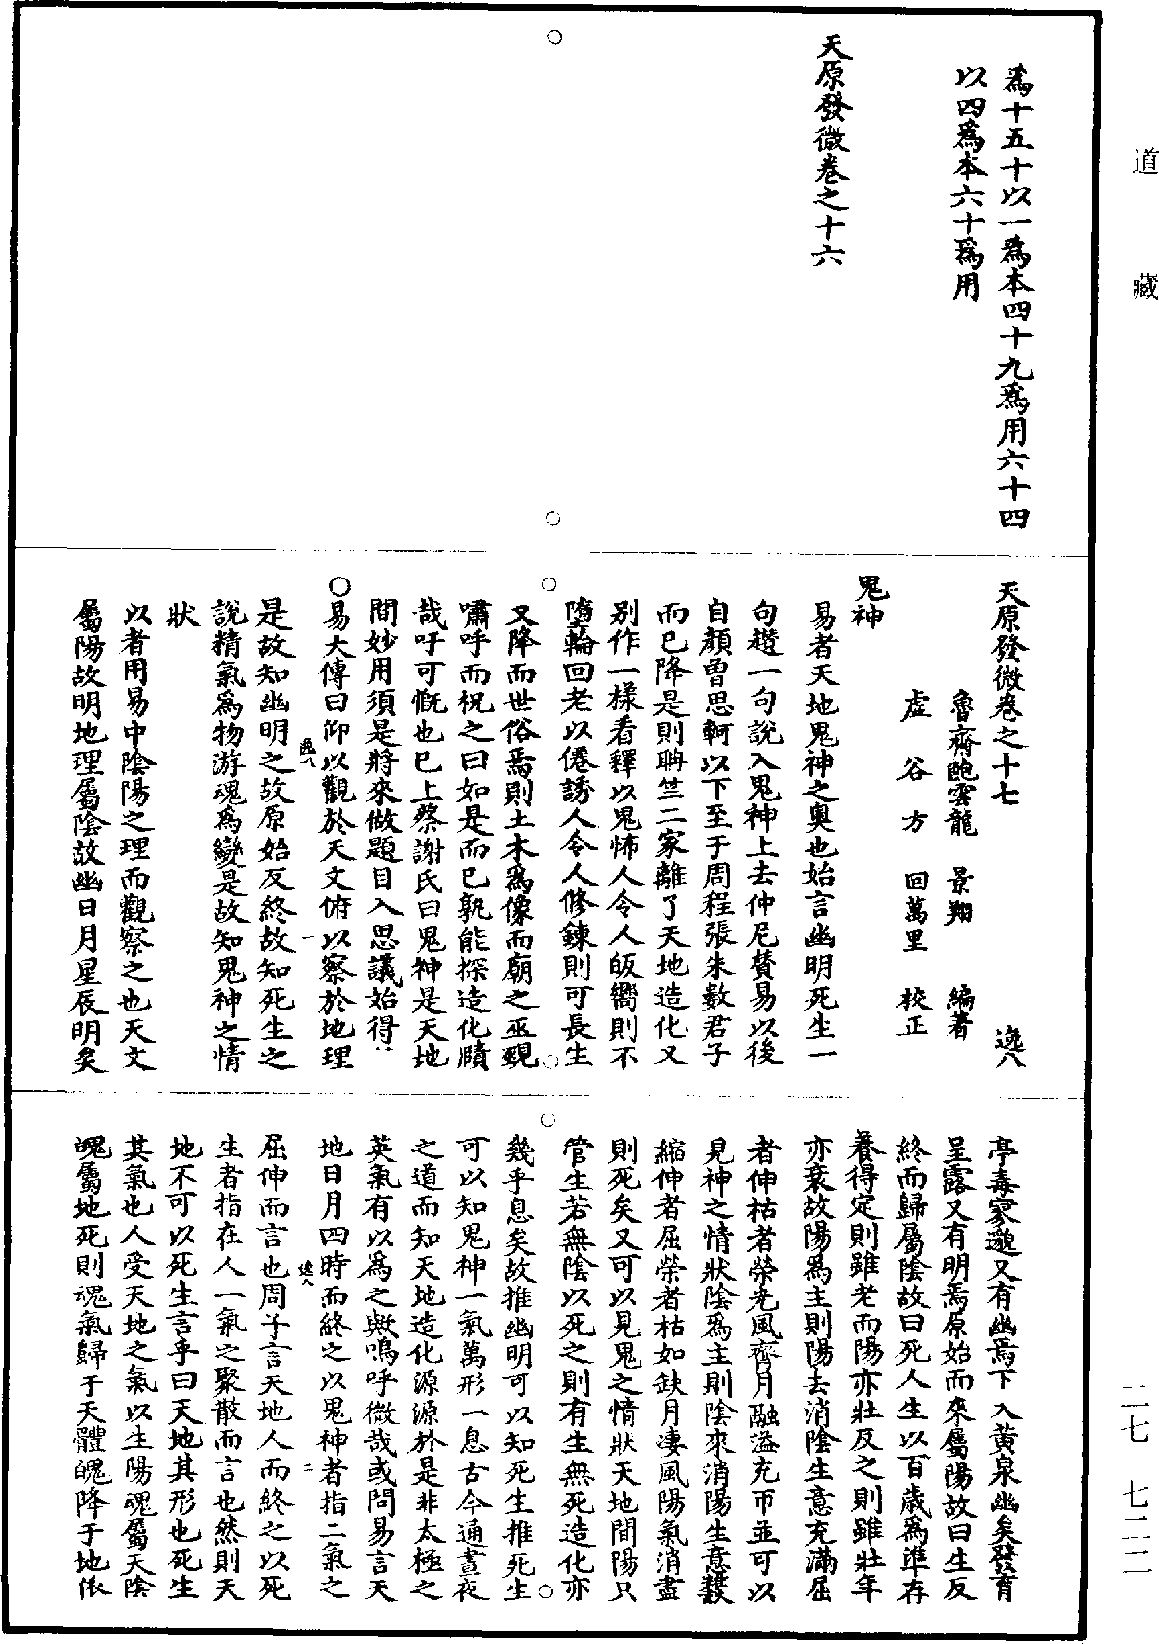 道藏
為十五十以一為本四十九為用六十四
以四為本六十為用
天原發微卷之十六
天原發微卷之十七
逸八
魯齋鮑雲龍 景翔 編著
虛谷方 回萬里 校正
鬼神
易者天地鬼神之奥也始言幽明死生一
句趲一句說入鬼神上去仲尼賛易以後
自顏曾思軻以下至于周程張朱數君子
而已降是則聃竺二家離了天地造化又
别作一樣看釋以鬼怖人令人皈嚮則不
墮輪回老以僊誘人令人修鍊則可長生
又降而世俗焉則土木為像而廟之巫覡
嘯呼而祝之曰如是而已孰能探造化賾
哉吁可慨也已上蔡謝氏曰鬼神是天地
間妙用須是將來做題目入思議始得
○易大傳曰仰以觀於天文俯以察於地理
是故知幽明之故原始反終故知死生之
說精氣為物游魂為變是故知鬼神之情
狀
以者用易中陰陽之理而觀察之也天文
屬陽故明地理屬陰故幽日月星辰明矣
逸八 一
亭毒寥邈又有幽焉下入黄泉幽矣發育
呈露又有明焉原始而來屬陽故曰生反
終而歸屬陰故曰死人生以百歲為準存
養得定則雖老而陽亦壯反之則雖壯年
亦衰故陽為主則陽去消陰生意充滿屈
者伸枯者榮光風霽月融溢充帀並可以
見神之情狀陰為主則陰來消陽生意
縮伸者屈榮者枯如缺月凄風陽氣消盡
則死矣又可以見鬼之情狀天地間陽只
管生若無陰以死之則有生無死造化亦
幾乎息矣故推幽明可以知死生推死生
可以知鬼神一氣萬形一息古今通晝夜
之道而知天地造化源源於是非太極之
英氣有以為之歟嗚呼微哉或問易言天
地日月四時而終之以鬼神者指二氣之
屈伸而言也周子言天地人而終之以死
生者指在人一氣之聚散而言也然則天
地不可以死生言乎曰天地其形也死生
其氣也人受天地之氣以生陽魂屬天陰
魄屬地死則魂氣歸于天體魄降于地依
逸八 二
二七 七二二